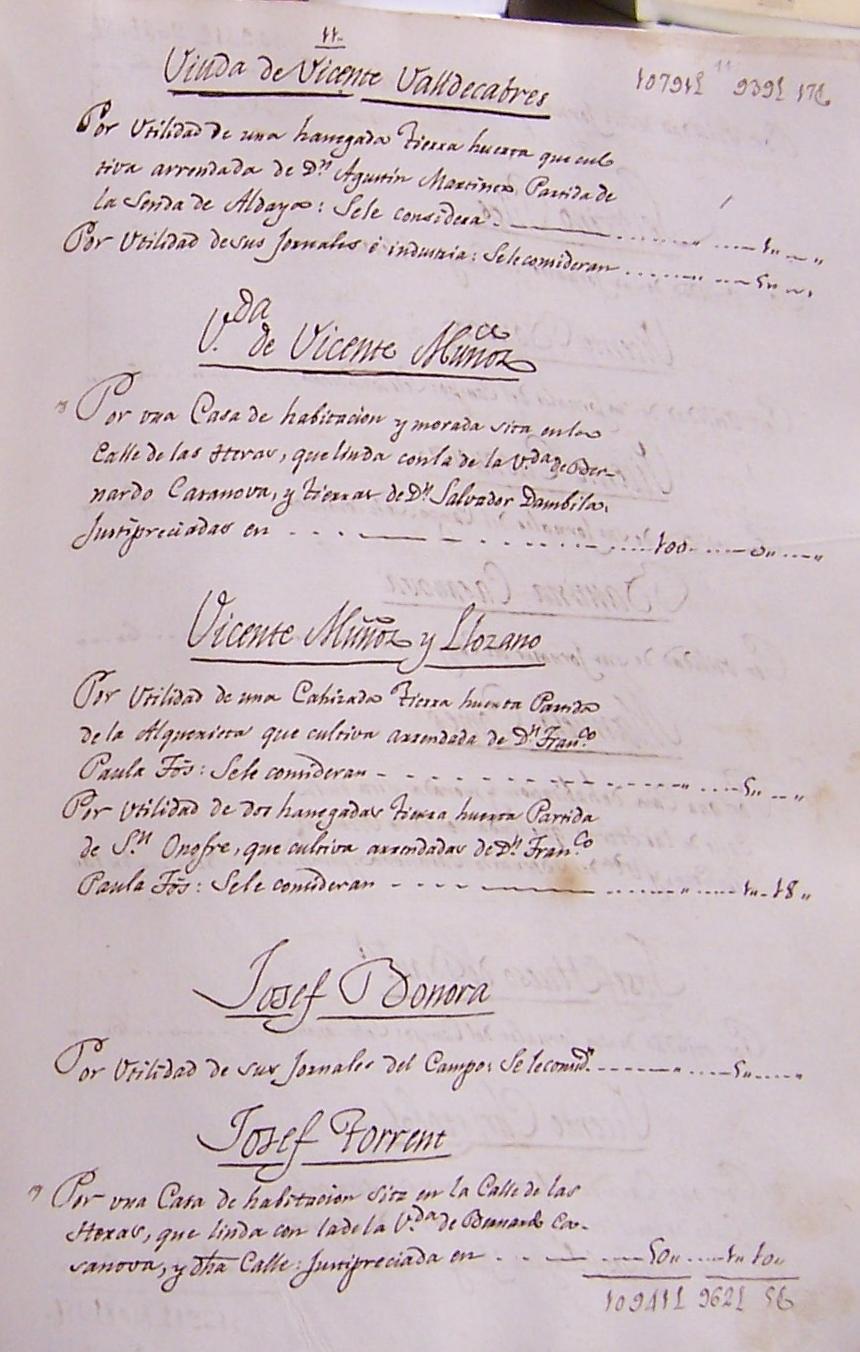 11.
Viuda de Vicente Valldecabres
10791£ 11 939£ 17§
Por Utilidad de una hanegada tierra huerta que cul
tiva arrendada de Dn. Agustin Martinez Partida de
la Senda de Aldaya: Sele considera
Por Utilidad de sus Jornales é industria: Sele consideran
V.da de Vicente Muñoz
Por una Casa de habitacion y morada sita en la
Calle de las Heras, que linda con la de la V.da de Ber-
nardo Casanova, y tierras de Dn. Salvador Dambila.
Justipreciadas en 100
Vicente Muñoz y Llozano
Por Utilidad de una Cahizada tierra huerta Partida
de la Alquerieta que cultiva arrendada de Dn. Franco
Paula Fōs: Sele consideran
Por Utilidad de dos hanegadas tierra huerta Partida
de Sn. Onofre, que cultiva arrendadas de Dn. Franco
Paula Fōs: Sele consideran 1 „ 18 „
Josef Bonora
Por Utilidad de sus Jornales del Campo: Se le consid.n
Josef Torrent
Por una Casa de habitacion sita en la Calle de las
Heras, que linda con la de la V.da de Bernardo Ca-
sanova, y dha Calle: Justipreciada en 50 „ 1 „ 10 „
10941£ 962£ 5§